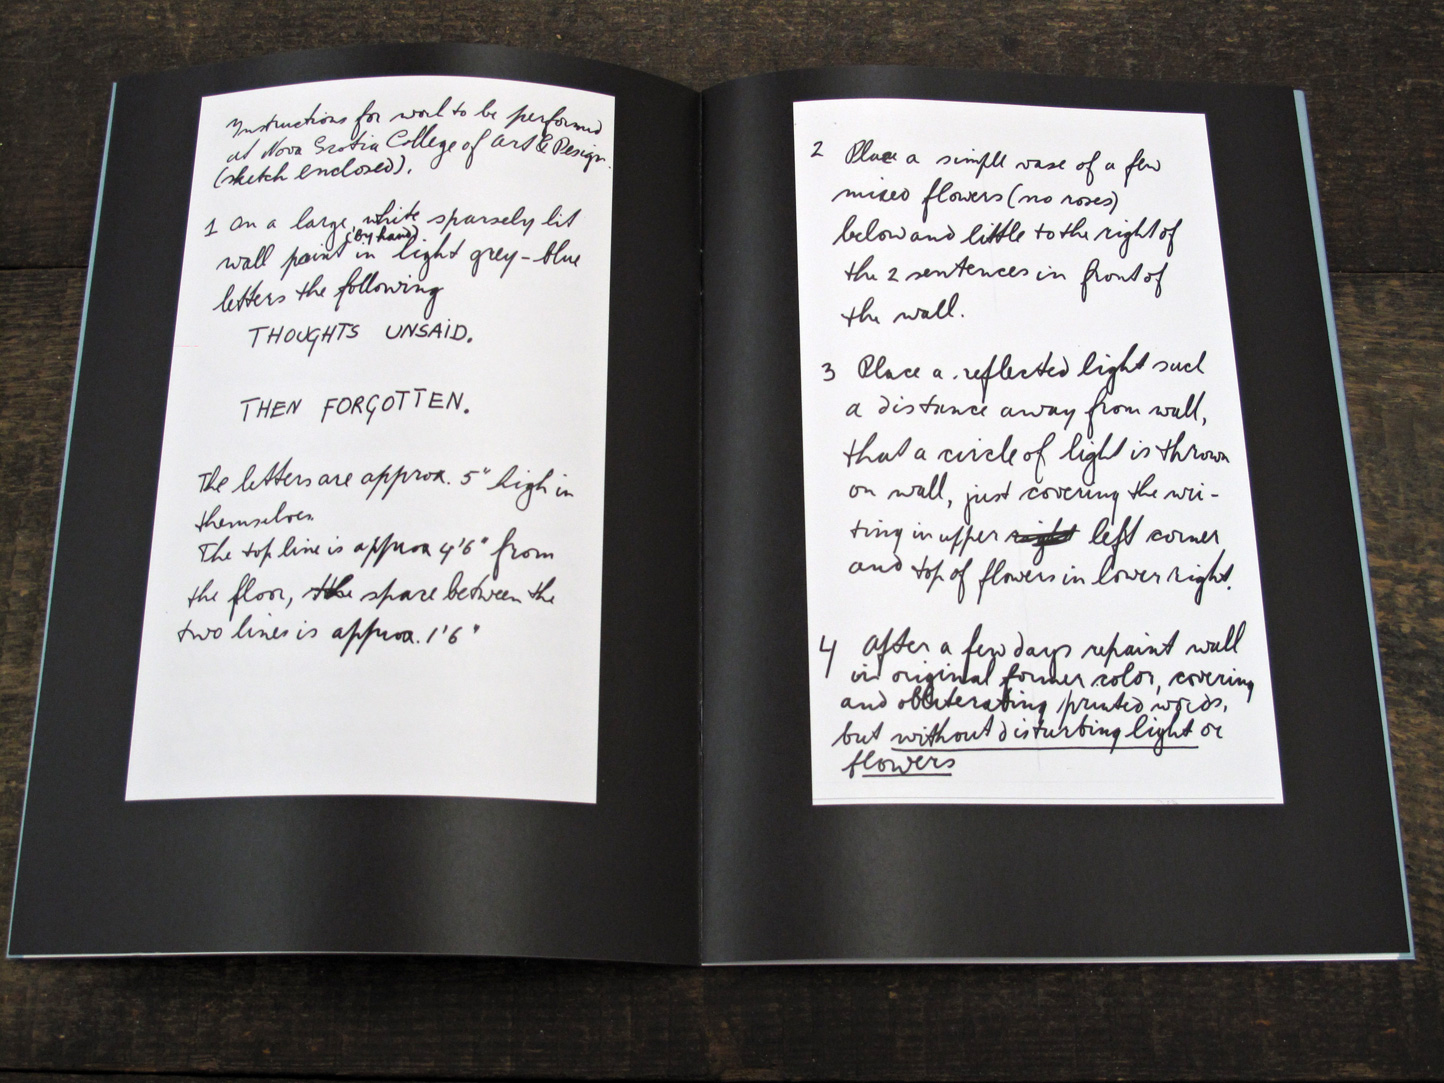 Instructions for work to be performed
at Nova Scotia College of Art & Design.
(sketch enclosed).
1 On a large, white sparsely lit
(by hand)
wall paint in light grey-blue
letters the following
THOUGHTS UNSAID.
THEN FORGOTTEN.
The letters are approx. 5" high in
themselves.
The top line is approx 4'6" from
the floor, the space between the
two lines is approx. 1'6"
2 Place a simple vase of a few
mixed flowers (no roses)
below and little to the right of
the 2 sentences in front of
the wall.
3 Place a reflected light such
a distance away from wall,
that a circle of light is thrown
on wall, just covering the wri-
ting in upper right left corner
and top of flowers in lower right.
4 After a few days repaint wall
in original former color, covering
and obliterating printed words,
but without disturbing light or
flowers